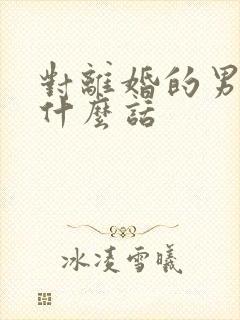 對離婚的男
什麼話
冰凌雪曦